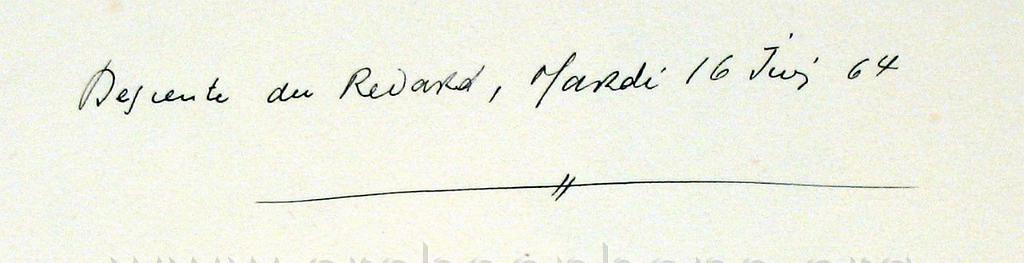 Descente du Revard, Mardi 16 Juin 64